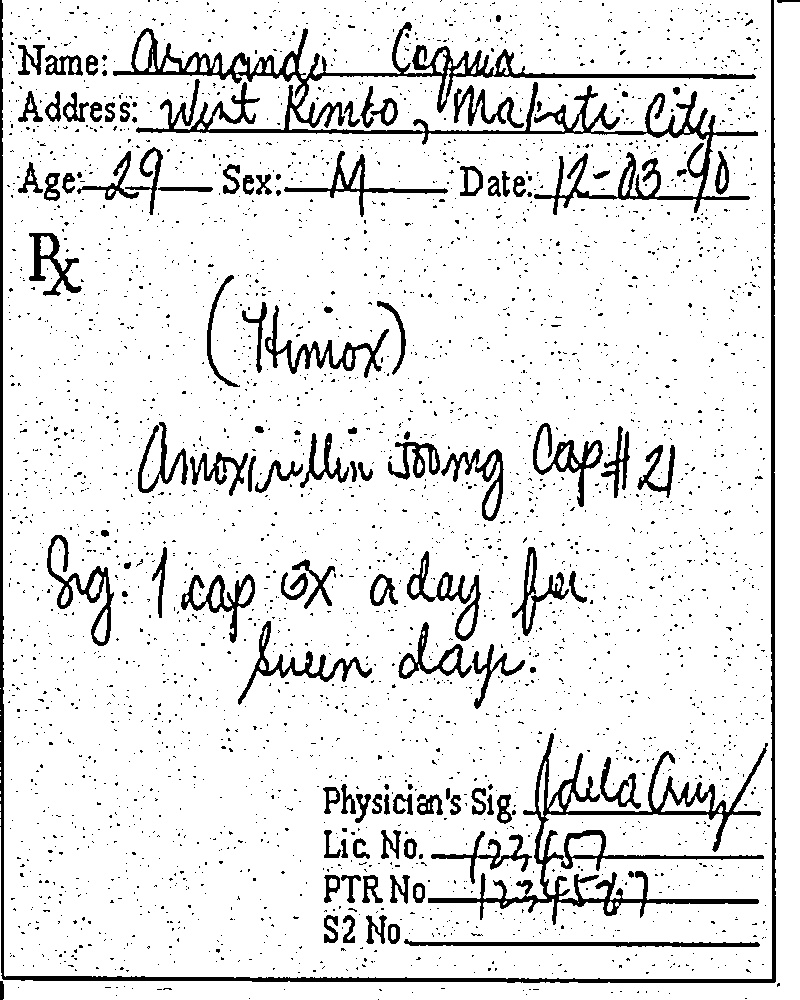 Name: Armando Cequia
Address: West Rembo, Makati City
Age: 29 Sex: M Date: 12-03-90
Rx
(Himox)
Amoxicillin 500mg Cap #21
Sig: 1 cap 3x a day for
seven days.
Physician's Sig. Jdela Cruz
Lic. No. 123457
PTR No. 1234567
S2 No.